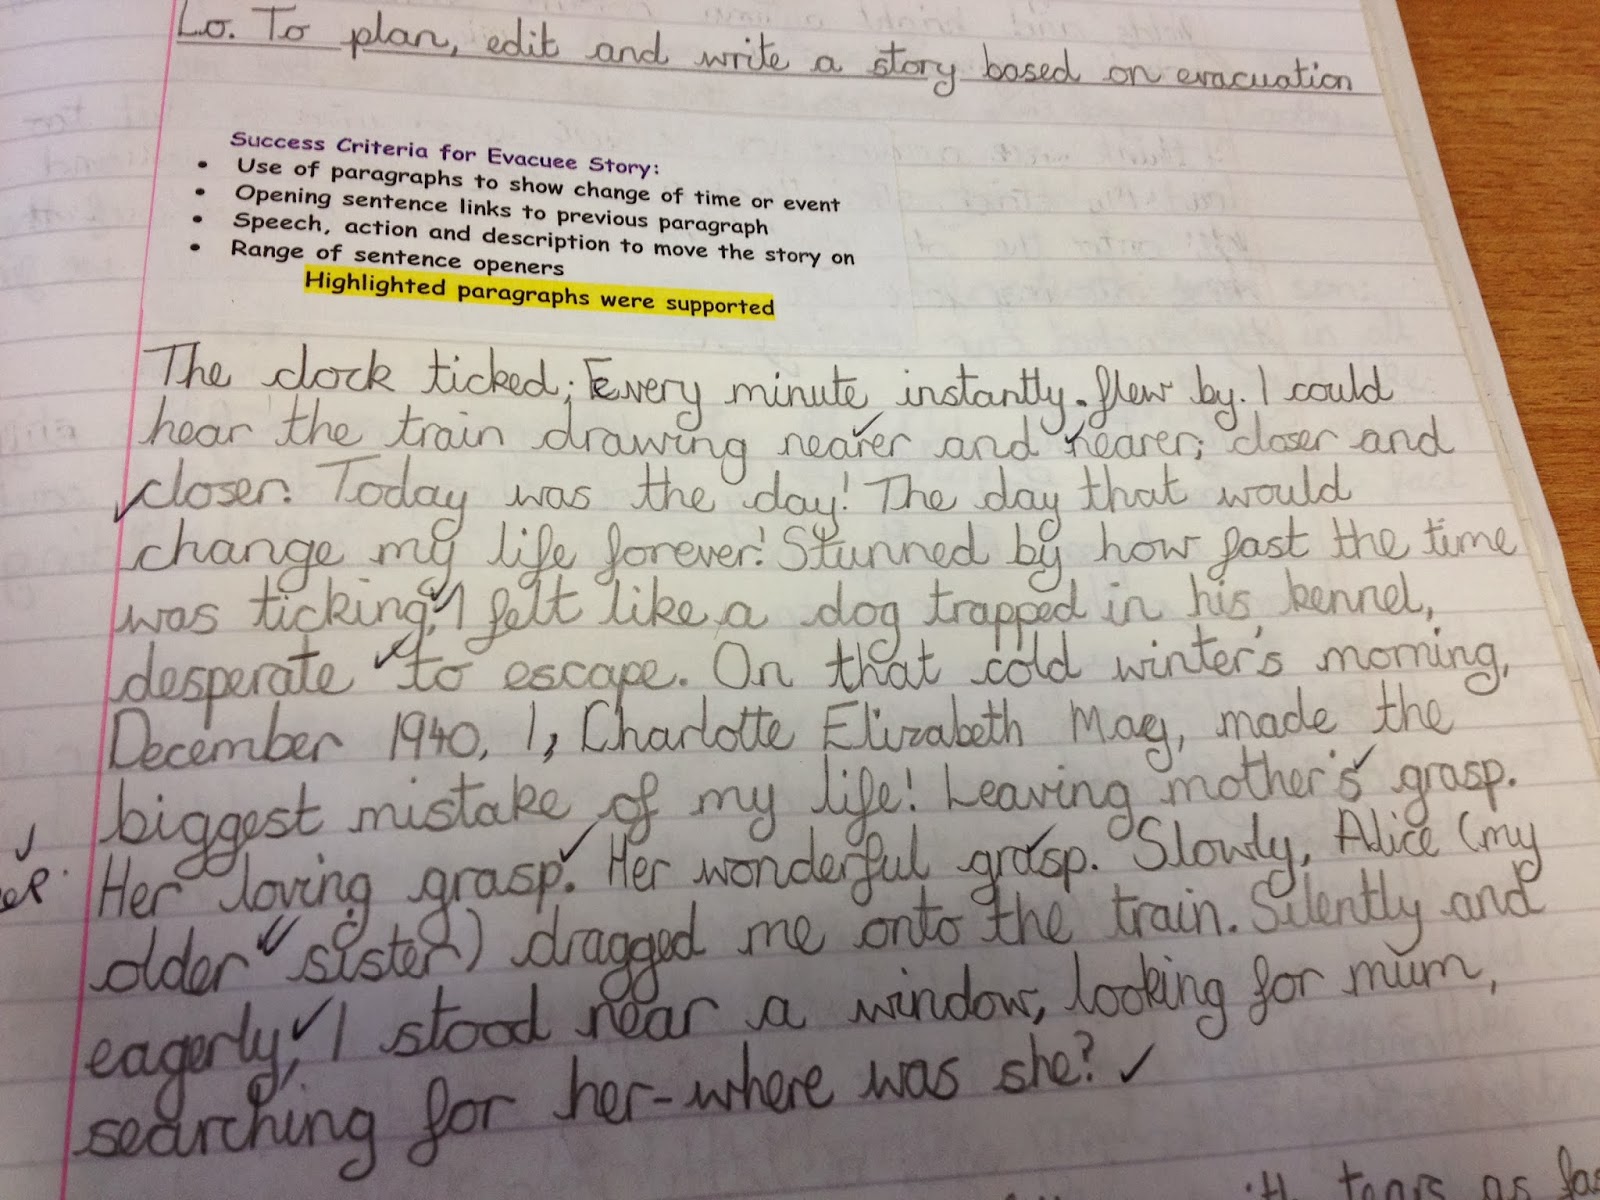 Lo. To plan, edit and write a story based on evacuation
Success Criteria for Evacuee Story:
• Use of paragraphs to show change of time or event
• Opening sentence links to previous paragraph
• Speech, action and description to move the story on
• Range of sentence openers
Highlighted paragraphs were supported
The clock ticked; Every minute instantly. flew by. I could
hear the train drawing nearer and nearer; closer and
closer. Today was the day! The day that would
change my life forever! Stunned by how fast the time
was ticking, I felt like a dog trapped in his kennel,
desperate to escape. On that cold winter's morning,
December 1940, I, Charlotte Elizabeth Mae, made the
biggest mistake of my life! Leaving mother's grasp.
Her loving grasp. Her wonderful grasp. Slowly, Alice (my
older sister) dragged me onto the train. Silently and
eagerly, I stood near a window, looking for mum,
searching for her-where was she?
tears as